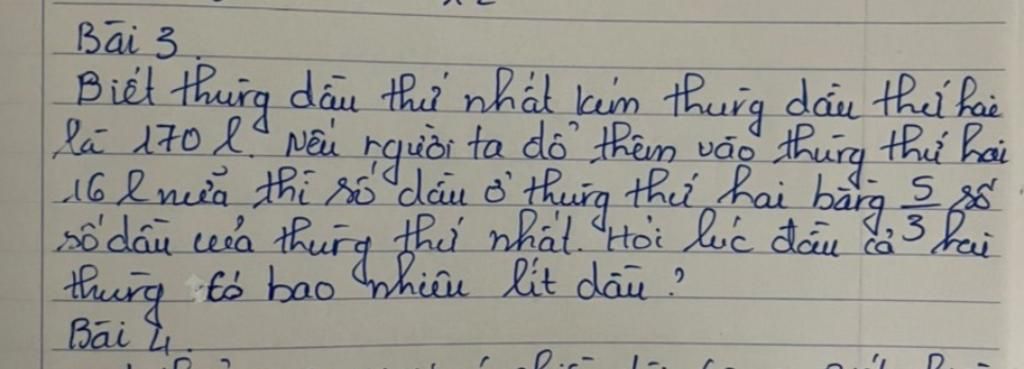 Bài 3.
Biết thùng dầu thứ nhất kém thùng dầu thứ hai
là 170 l. Nếu người ta đổ thêm vào thùng thứ hai
16 l nữa thì số dầu ở thùng thứ hai bằng 5/3 số
số dầu của thùng thứ nhất. Hỏi lúc đầu cả hai
thùng có bao nhiêu lít dầu?
Bài 4.